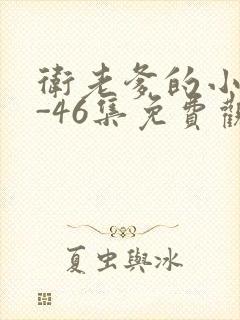 衛老爹的小
-46集免費觀
夏虫與冰